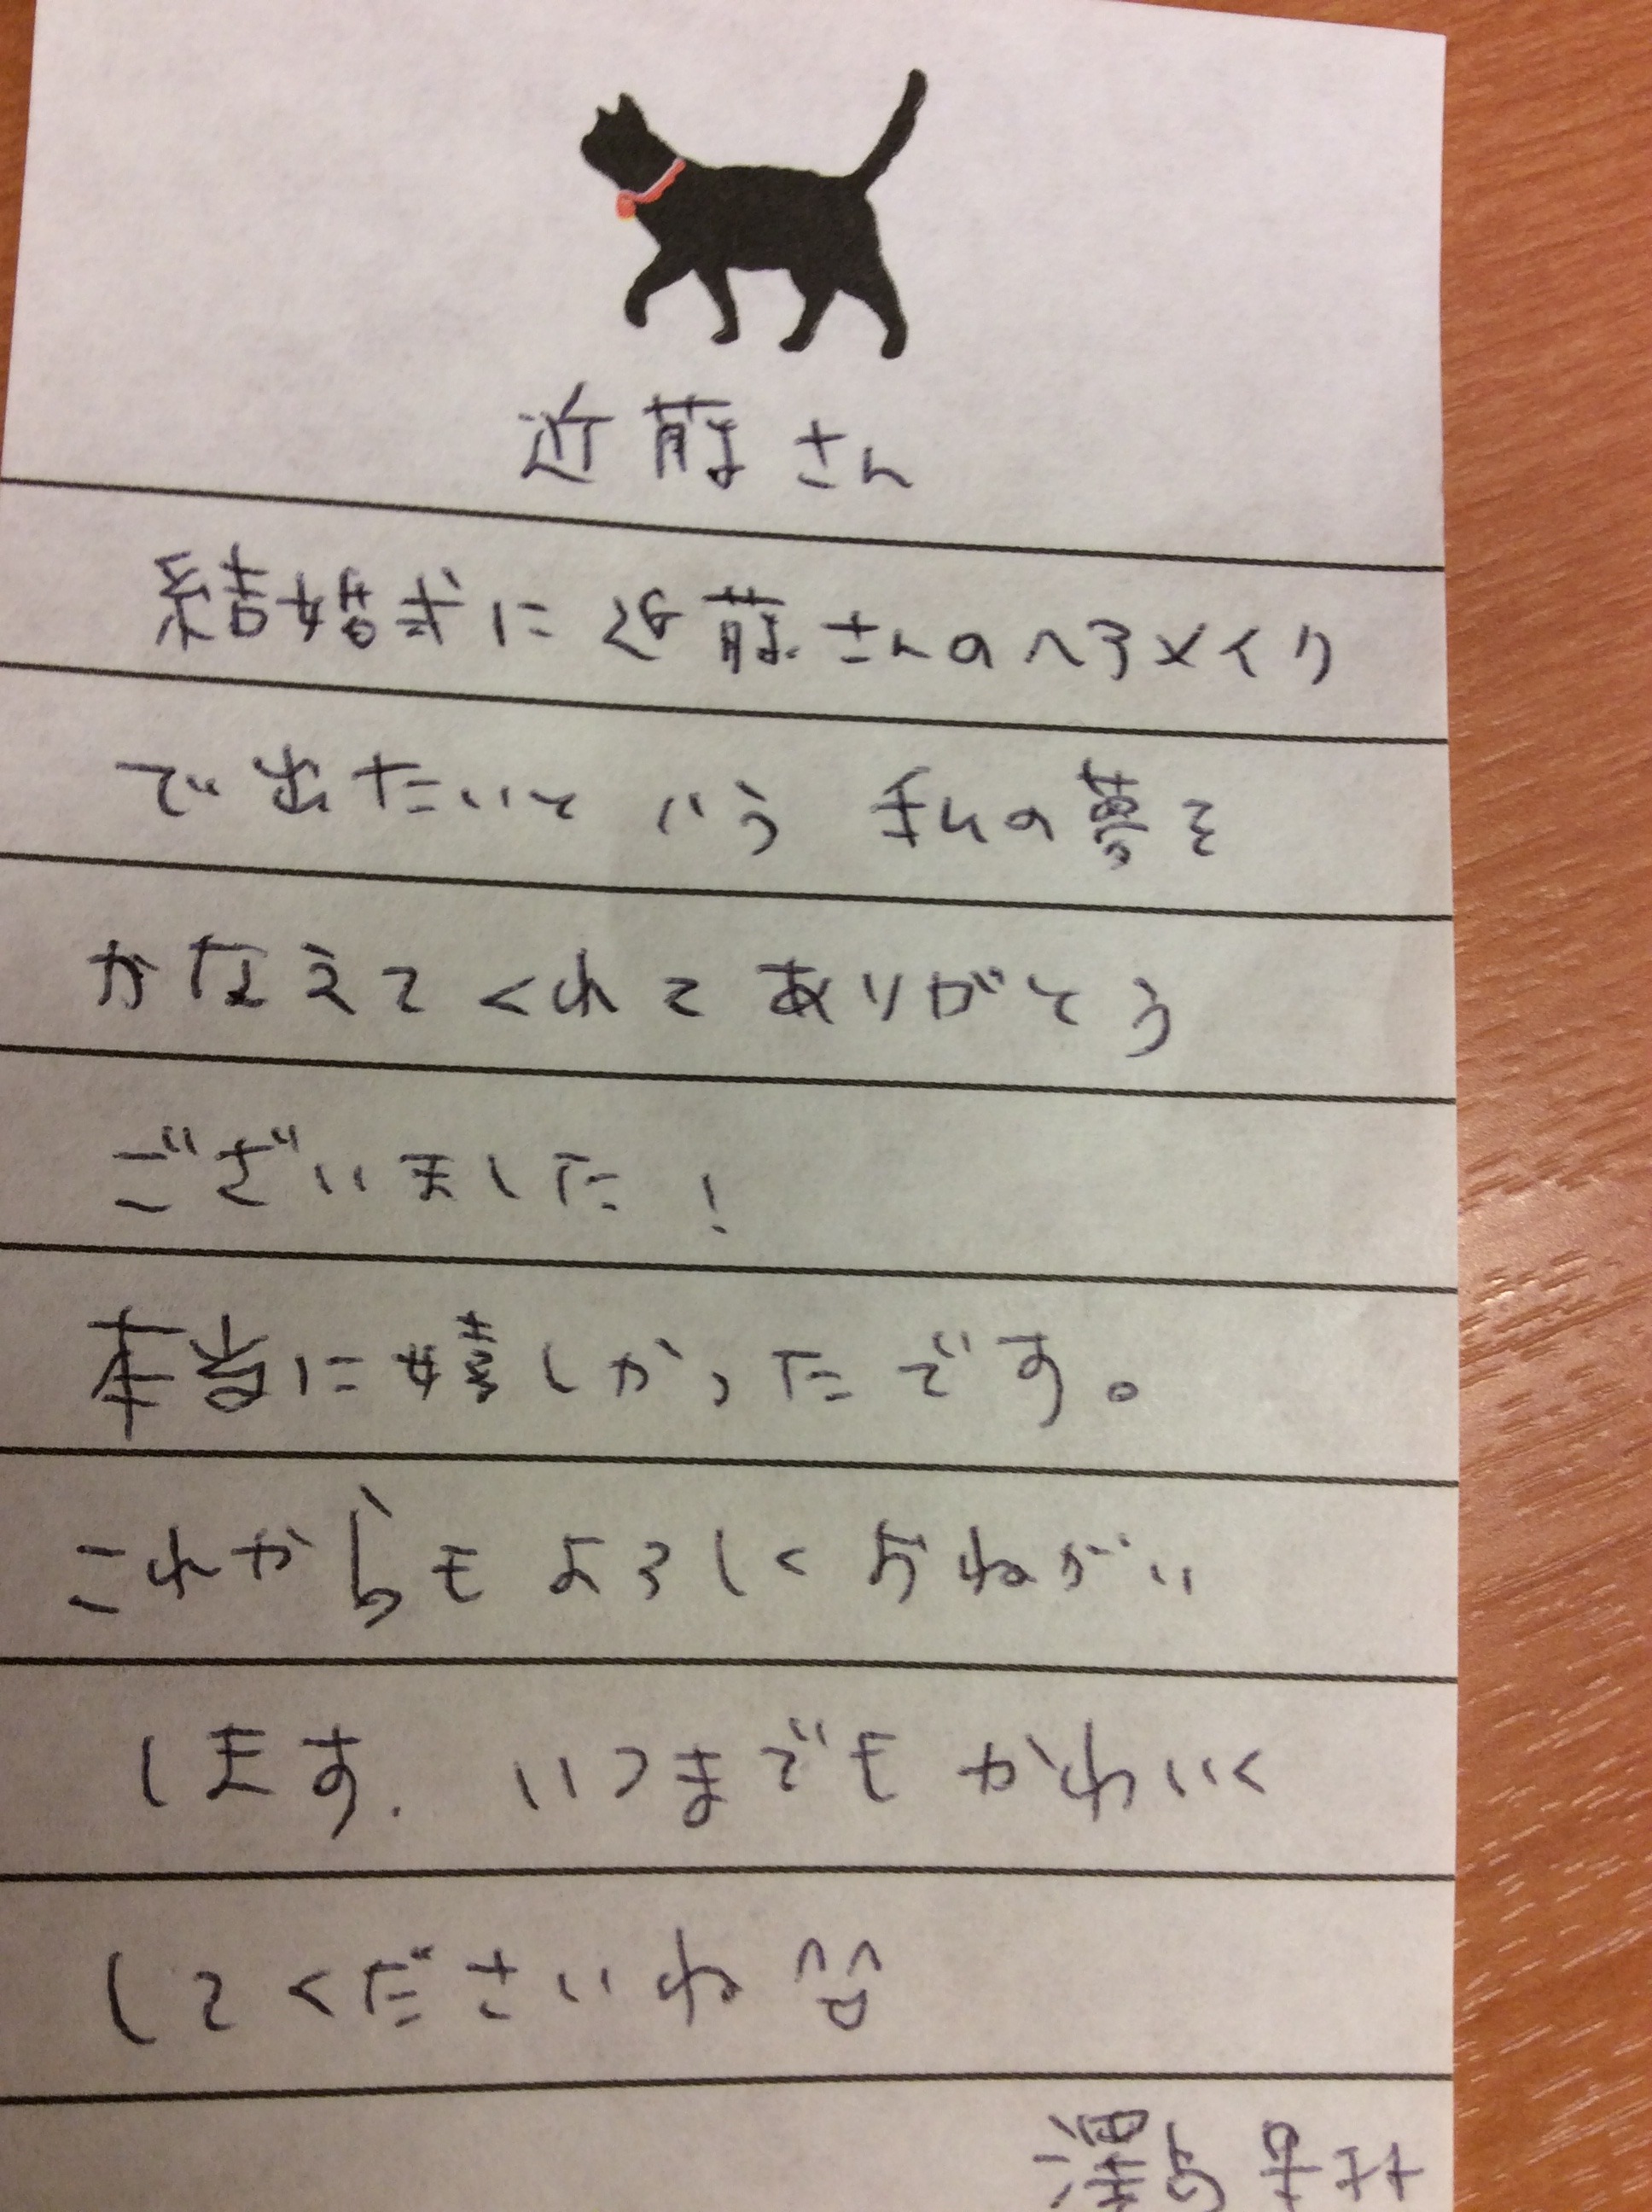 近藤さん
結婚式に近藤さんのヘアメイク
で出たいという 私の夢を
かなえてくれてありがとう
ございました!
本当に嬉しかったです。
これからもよろしくおねがい
します. いつまでもかわいく
してくださいね